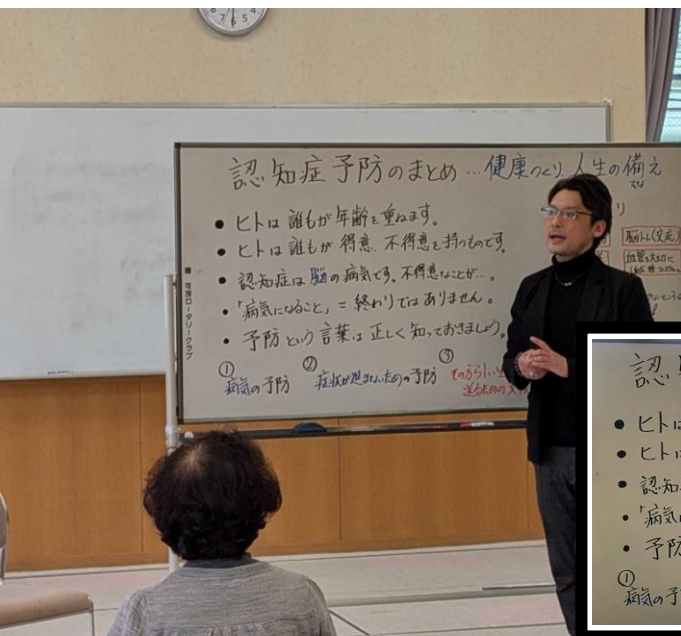 認知症予防のまとめ…健康づくり 人生の備え
そな
り
• ヒトは誰もが年齢を重ねます。
• ヒトは誰もが得意、不得意を持つものです。
脳トレ(交流)
• 認知症は脳の病気です。不得意なことが…。
• 「病気になること」=終わりではありません。
• 予防という言葉は正しく知っておきましょう。
① 病気の予防 ② 症状が進まないための予防 ③ その方らしい
送るための
ロータリークラブ
認
• ヒトは
• ヒトは
• 認知
• 「病気に
• 予防
① 病気の予